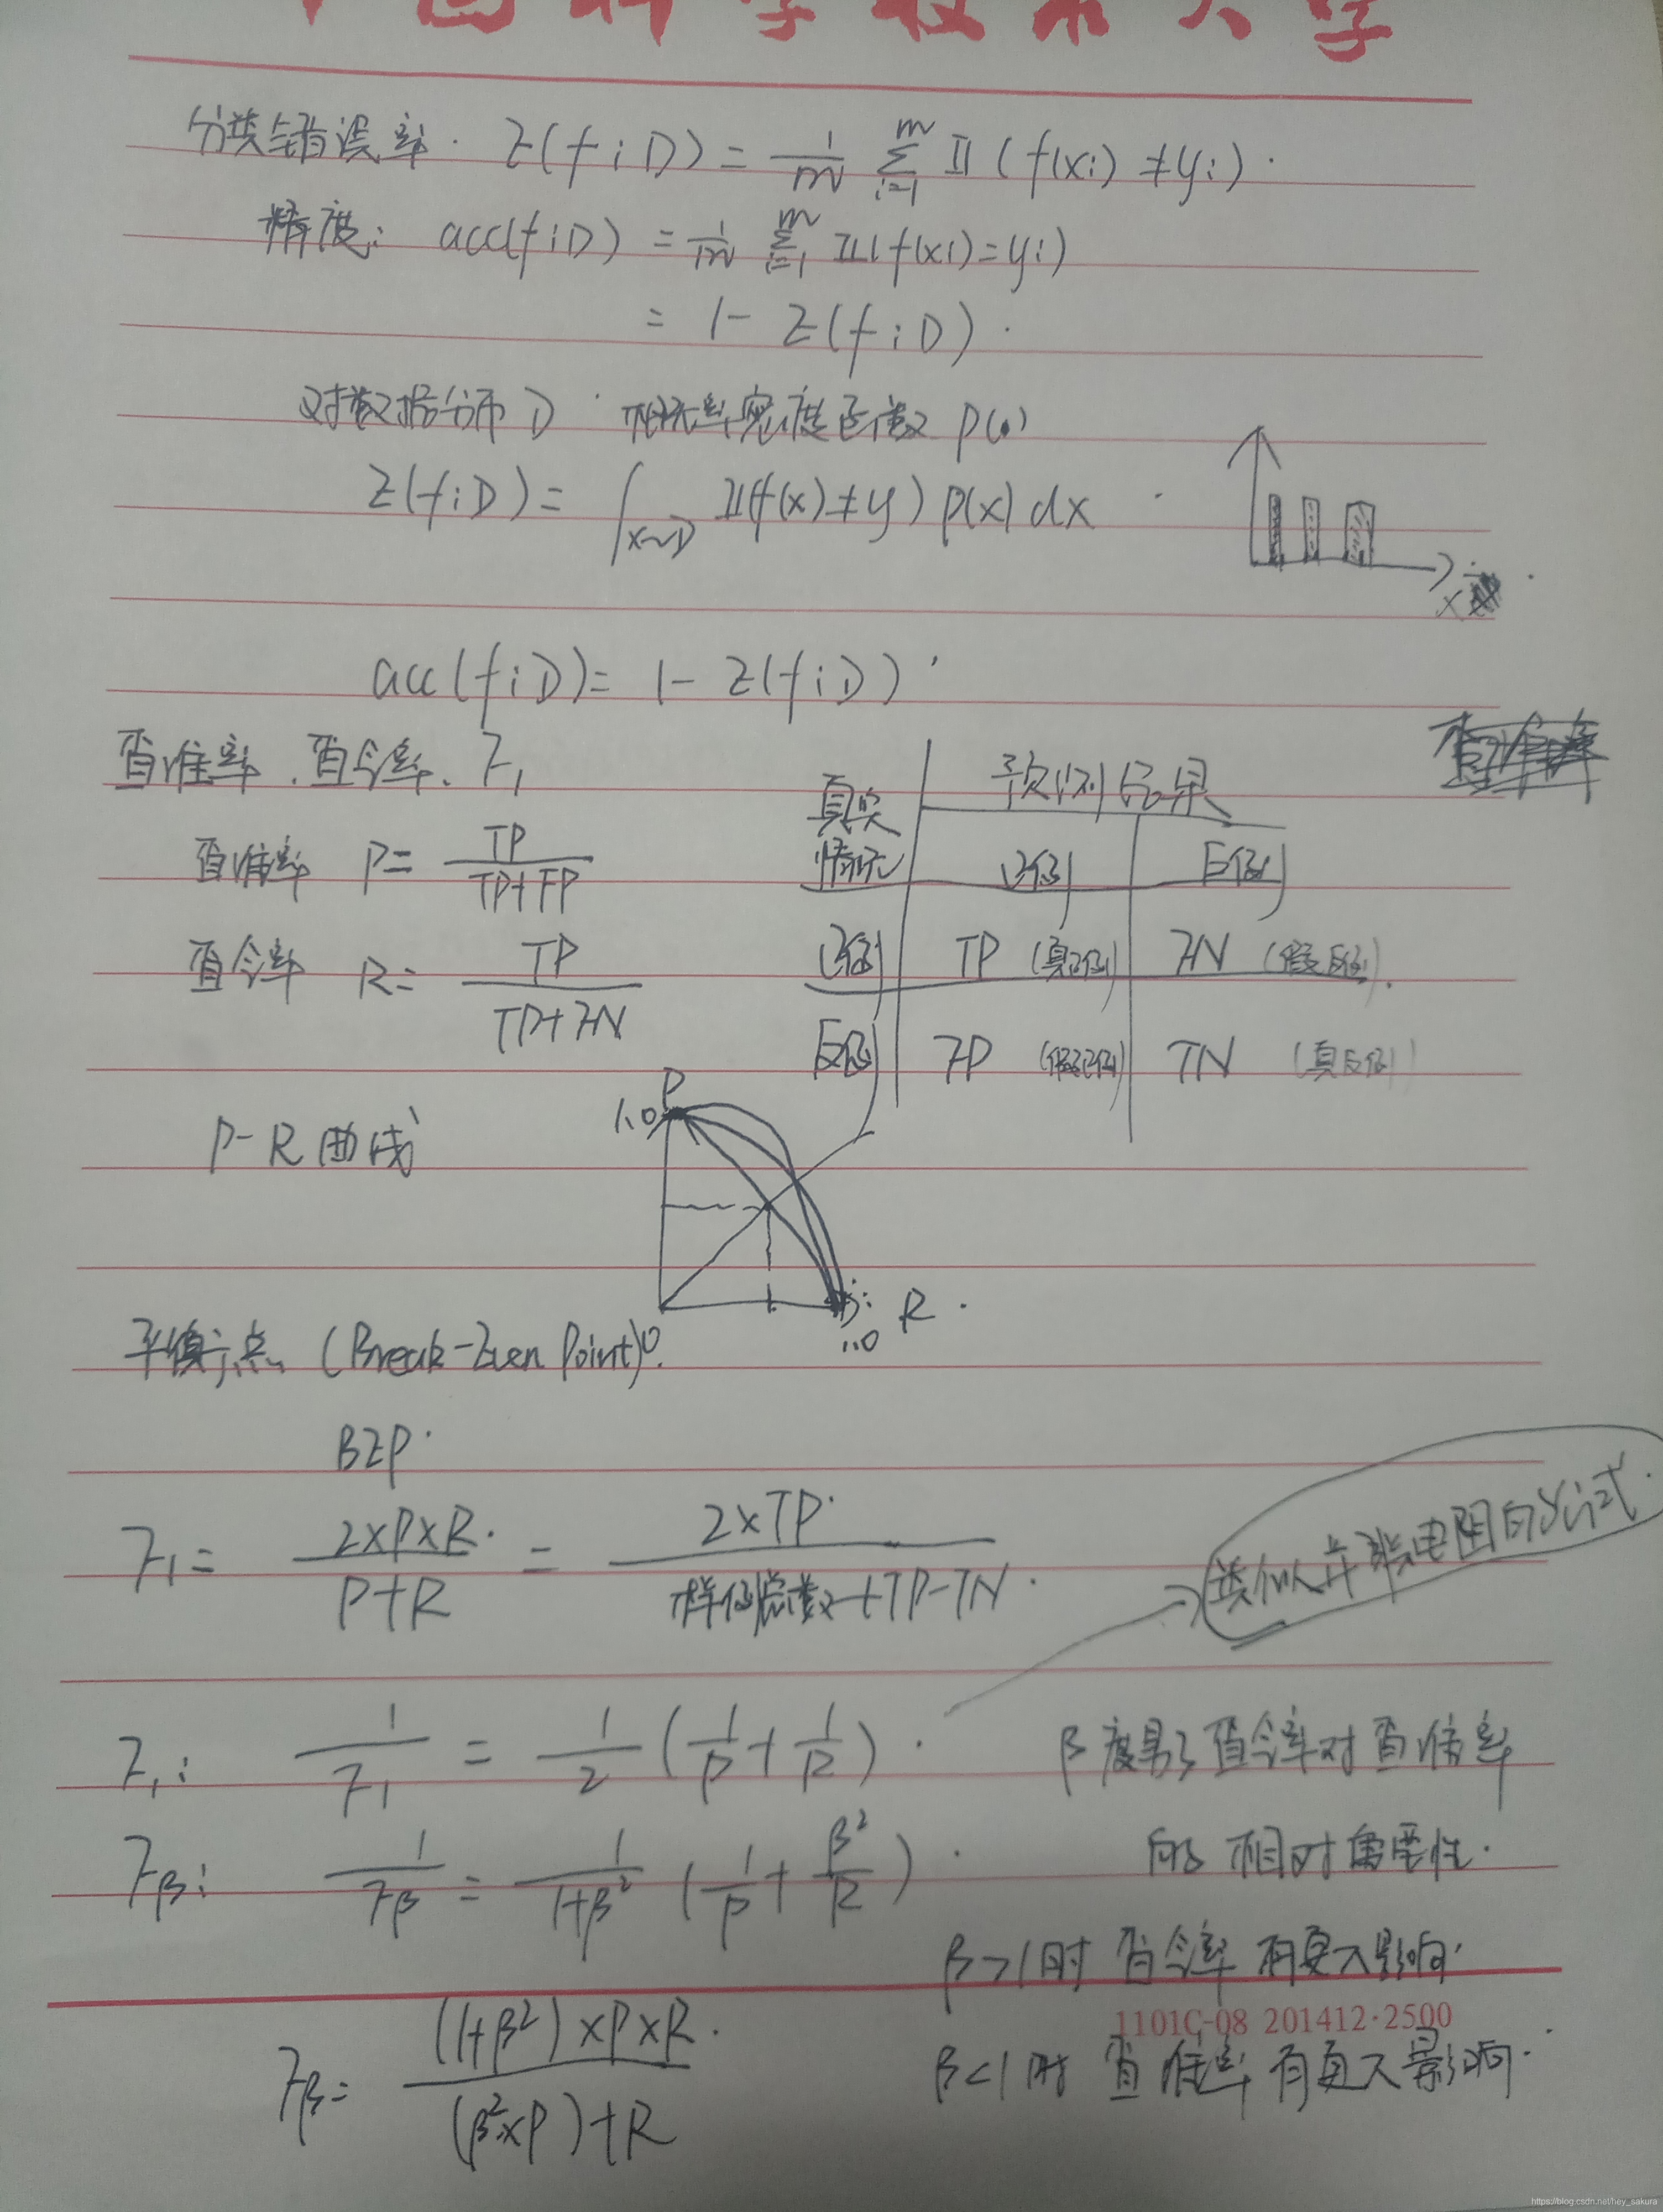 中国科学技术大学
分类错误率. E(f;D) = 1/m ∑_{i=1}^{m} II(f(xi) ≠ yi).
精度: acc(f;D) = 1/m ∑_{i=1}^{m} II(f(xi) = yi)
= 1 - E(f;D).
对数据分布D 概率密度函数 P(•)
E(f;D) = ∫_{x~D} II(f(x) ≠ y) p(x) dx
x
acc(f;D) = 1 - E(f;D)
查准率、查全率、F1
查准率 P = TP/(TP+FP)
查全率 R = TP/(TP+FN)
真实情况 预测结果
正例 反例
正例 TP (真正例) FN (假反例)
反例 FP (假正例) TN (真反例)
P-R曲线
P
1.0
R
1.0
0
平衡点 (Break-Even Point)
BEP
F1 = (2×P×R)/(P+R) = (2×TP)/(样例总数+TP-TN)
类似并联电阻的公式
F1: 1/F1 = 1/2 (1/P + 1/R).
β度量了查全率对查准率
的相对重要性.
Fβ: 1/Fβ = 1/(1+β²) (1/P + β²/R).
β>1时 查全率有更大影响.
1101C-08 201412·2500
β<1时 查准率有更大影响.
Fβ = ((1+β²)×P×R)/((β²×P)+R)
https://blog.csdn.net/hey_sakura